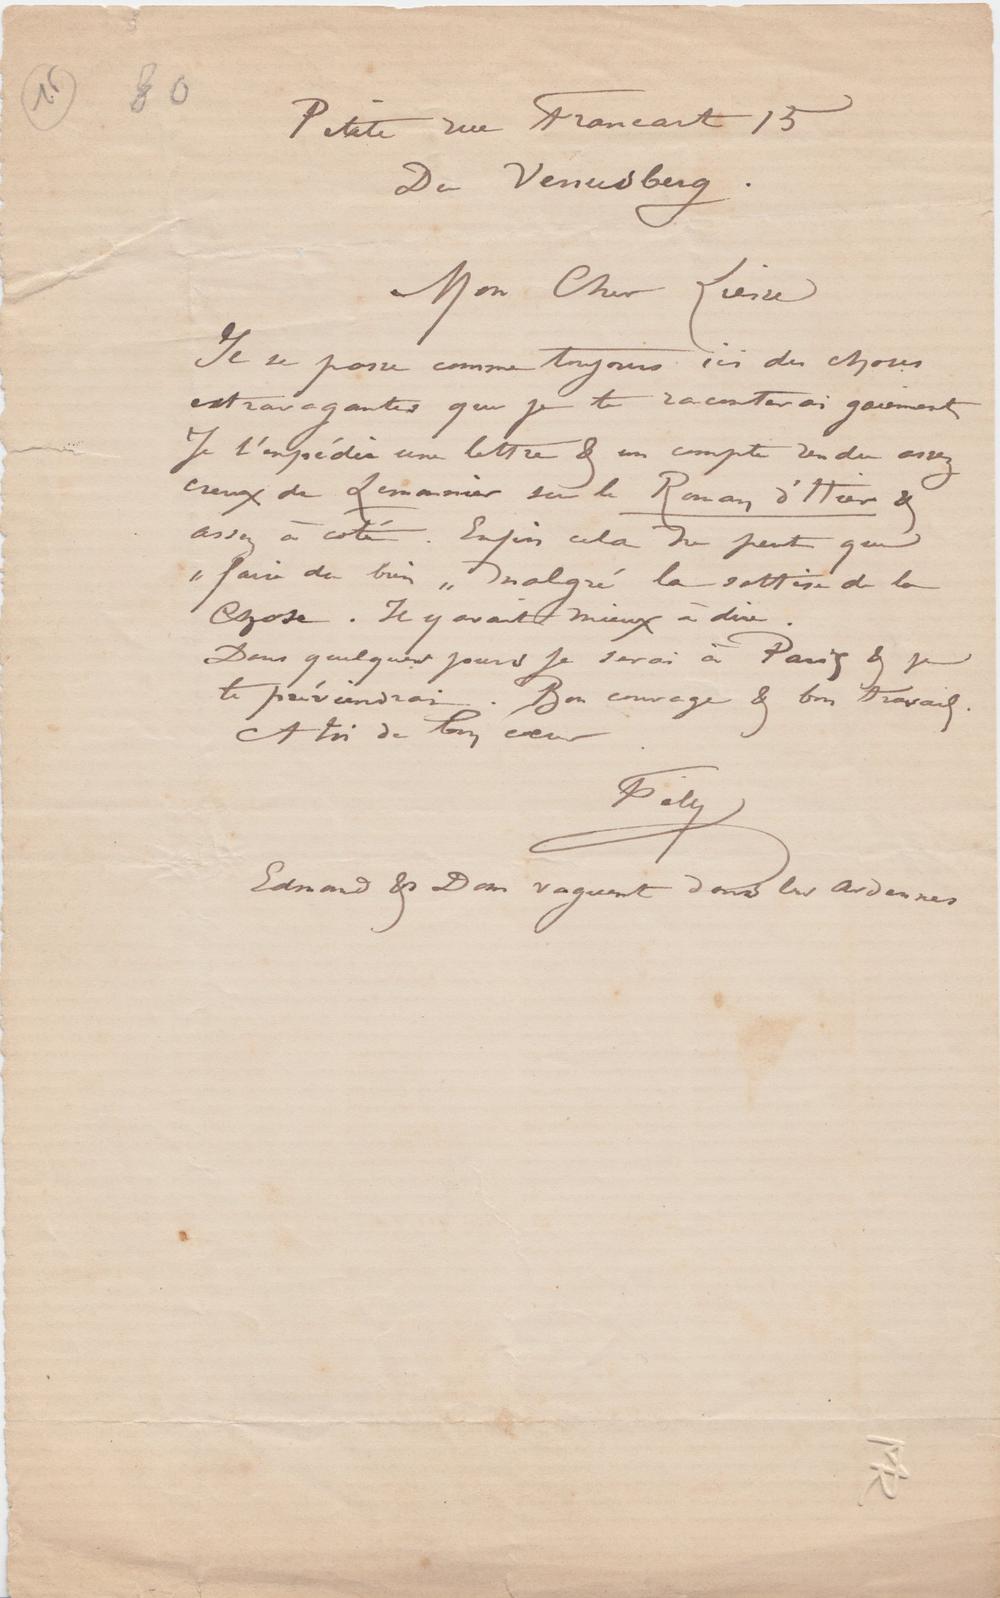 15 80
Petite rue Francart 15
Du Venusberg.
Mon Cher Liesse
Il se passe comme toujours ici des choses
extravagantes que je te raconterai gaiement
Je t'expédie une lettre & un compte rendu assez
creux de Lemonnier sur le Roman d'Hier &
assez à coté. Enfin cela ne peut que
„ faire du bien „ malgré la sottise de la
Chose. Il y avait mieux à dire.
Dans quelques jours je serai à Paris & je
te préviendrai. Bon courage & bon travail.
A toi de bon cœur
Fély
Edmond & Dom vaguent dans les ardennes
FR